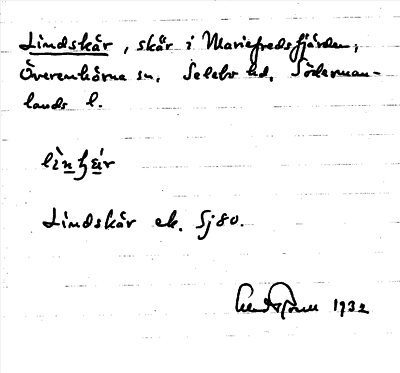 Lindskär, skär i Mariefredsfjärden,
Överenhörna sn, Selebo hd, Söderman-
lands l.
Lindskär ek. Sj 80.
1932